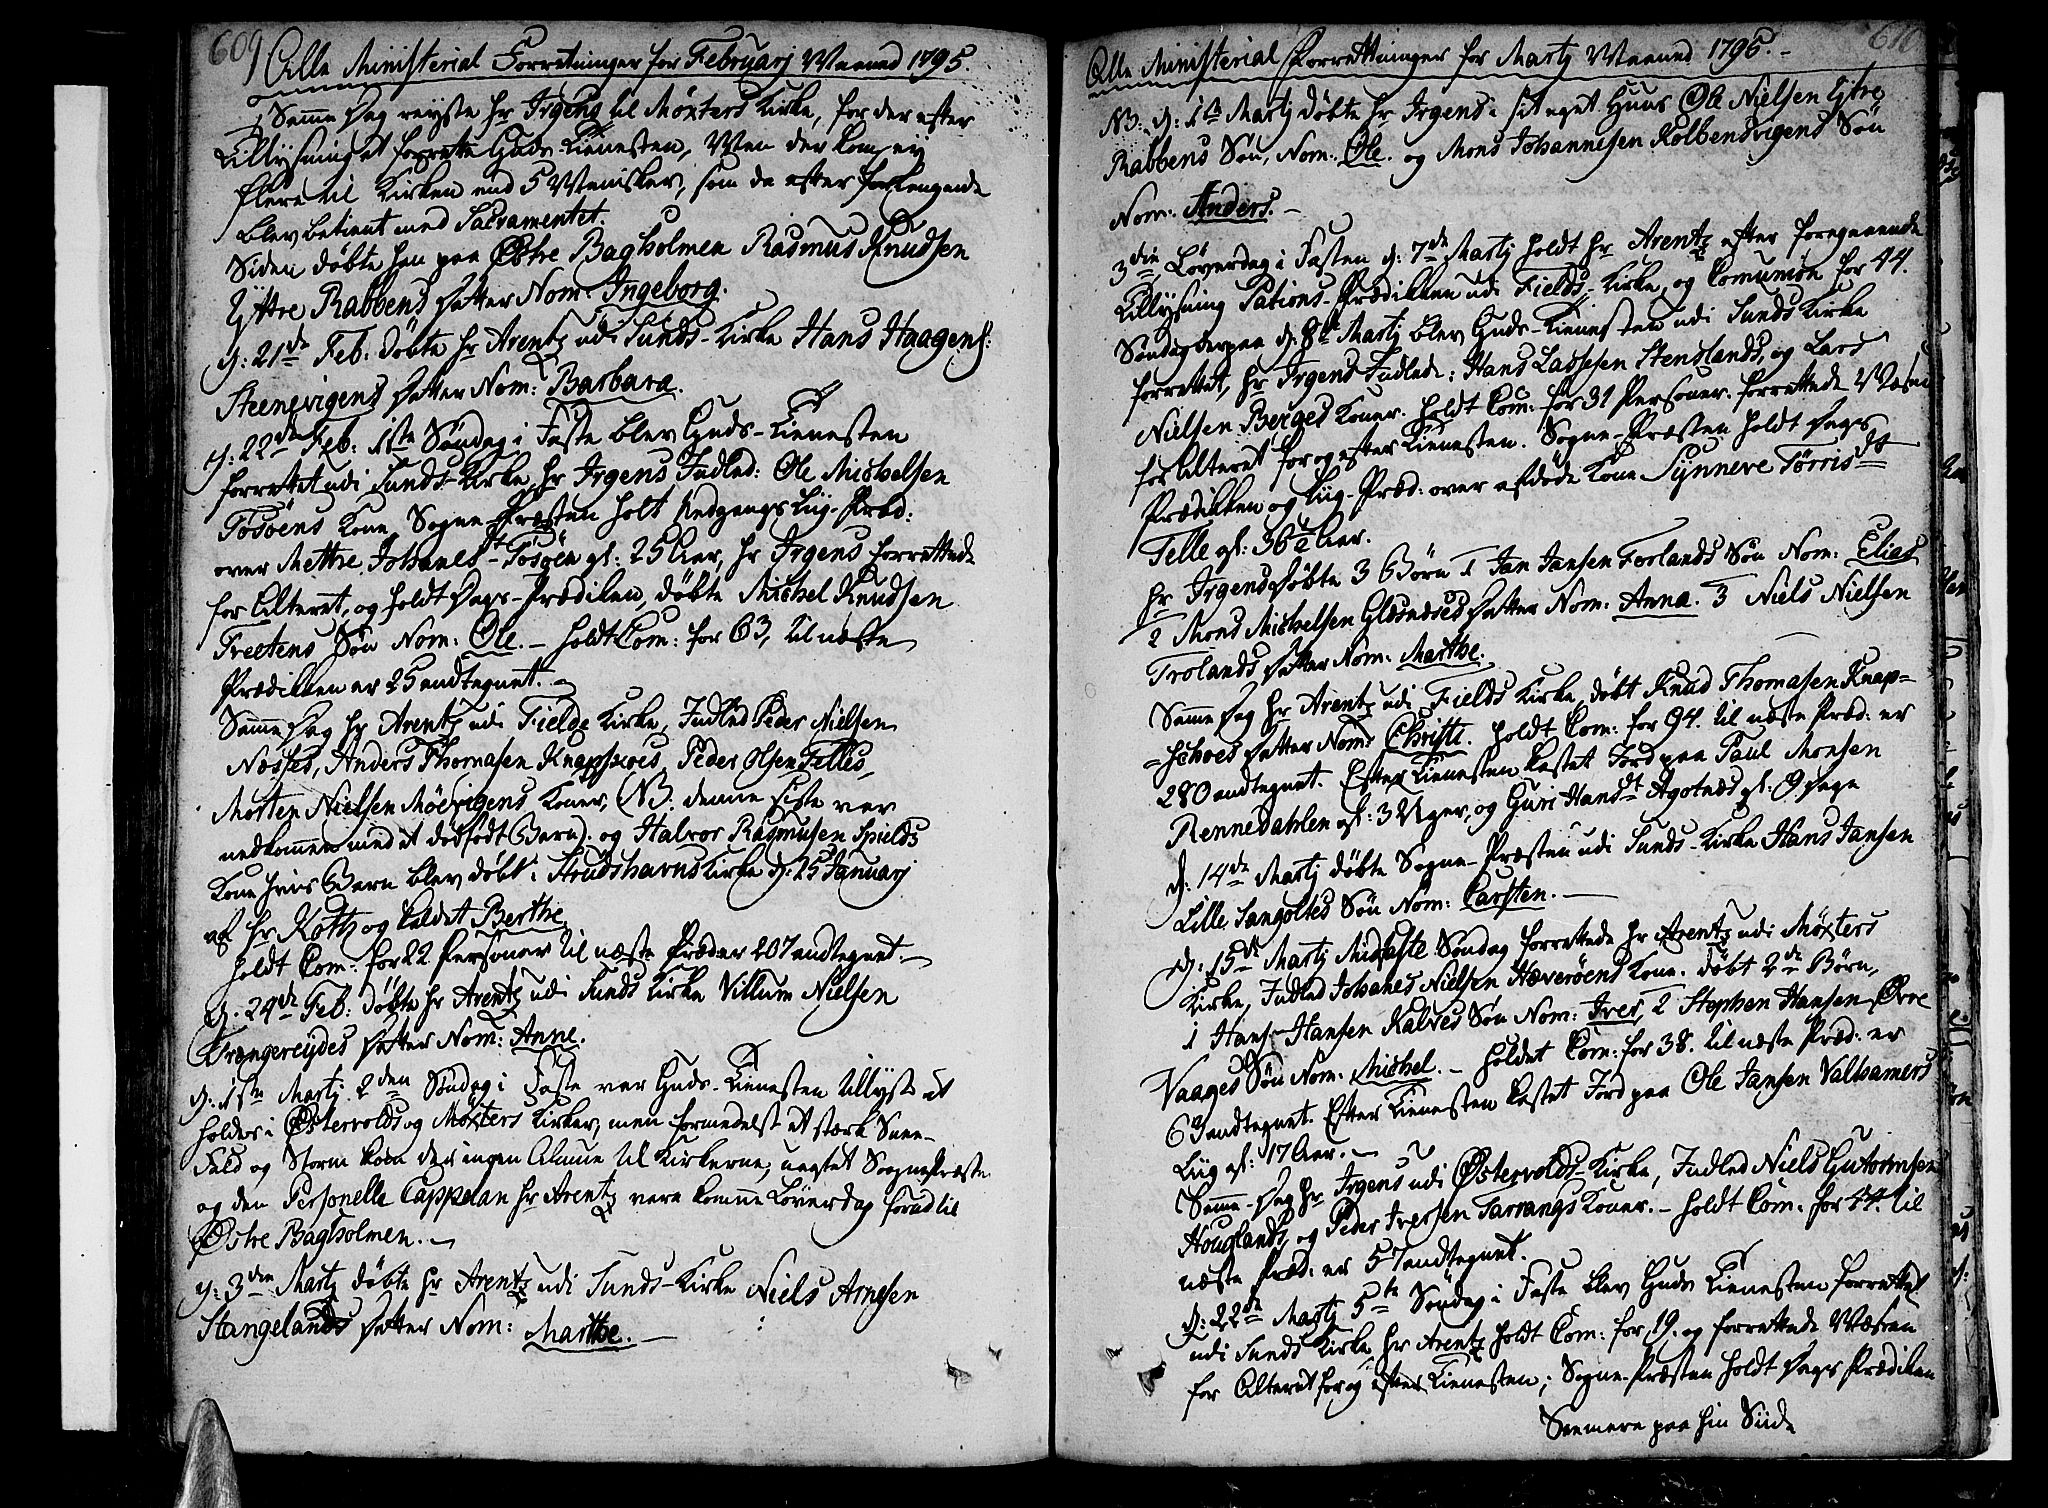 609
Alle Ministerial Forretninger for Februarj Maaned 1795.
Samme Dag reyste hr Irgens til Møxters Kirke, for der efter
Tillysning at forrette Guds-Tienesten, Men der kom ey
flere til Kirken end 5 Menisker, som da efter forlangende
blev betient med Sacramentet.
Siden døbte han paa Østre Bagholmen Rasmus Knudsen
Yttre Rabbens Datter Nom: Ingeborg.
d: 21de Feb: døbte hr Arentz udi Sunds-Kirke Hans Haagens:
Steensvigens Datter Nom: Barbara.
d: 22de Feb: 1ste Søndag i Faste blev Guds-Tienesten
forrettet udi Sunds-Kirke, hr Irgens Indled: Ole Michelsen
Tøsøens Kone Sogne-Præsten holt Nedgangs Liig-Præd:
over Mettre Johanes Dt Tøsøen gl: 25 Aar, hr Irgens forrettede
for Alteret, og holdt Dags-Prædiken, døbte Michel Knudsen
Treetens Søn Nom: Ole. – holdt Com: for 63, til næste
Prædikken er 25 andtegnet. –
Samme Dag hr Arentz udi Fielde Kirke, Indled Peder Nielsen
Nesses, Anders Thomasen Knapskoes, Peder Olsen Telles,
Morten Nielsen Møevigens Koner, (NB. denne siste var
nedkommen med et dødfødt Barn). og Halvor Rasmusen Spields
Kone hvis Barn blev døbt i Strudshavns Kirke d: 25 Januarj
af hr Koth og kaldet Berthe.
holdt Com: for 22 Personer til næste Præd er 207 andtegnet. –
d: 24de Feb: døbte hr Arentz udi Sunds Kirke Villum Nielsen
Trængereydes Datter Nom: Anne.
d: 1ste Martj 2den Søndag i Faste var Guds-Tienesten tillyst at
holdes i Østervolds og Møxters Kirker, men formedelst et stærk Snee-
Fald og Storm kom der ingen Almue til Kirkerne, uagtet Sogne Præsten
og den Personelle Cappelan hr Arentz vare komne Løverdag forud til
Østre Bagholmen. –
d: 3die Martj døbte hr Arentz udi Sunds-Kirke Niels Arnesen
Stangelands Datter Nom: Marthe. –
610
Alle Ministerial Forrettninger for Martj Maaned 1795. –
NB. d: 1te Martj døbte hr Irgens i sit eget Huus Ole Nielsen Ytre
Rabbens Søn, Nom: Ole. og Mons Johannesen Kolbensvigens Søn
Nom: Anders. –
3die Løverdag i Fasten d: 7de Martj holdt hr Arentz efter foregaaende
Tillysning Pations-Prædikken udi Fields-Kirke, og Comunion for 44.
Søndag derpaa d: 8de Martj blev Guds-Tienesten udi Sunds Kirke
forrettet, hr Irgens Indlede: Hans Lassesen Stenslands, og Lars
Nielsen Berges Koner. holdt Com: for 31 Personer. forrettede Mæssen
for Alteret for og efter Tienesten. Sogne-Præsten holdt Dags
Prædikken og Liig-Præd: over afdøde Kone Synneve Tørris dt
Telle gl: 36½ Aar.
hr Irgens døbte 3 Børn 1 Jan Jansen Forlands Søn Nom: Elias
2 Mons Michelsen Glesnesses Datter Nom: Anna. 3 Niels Nielsen
Trolands Datter Nom: Marthe.
Samme Dag hr Arentz udi Fields Kirke, døbt Knud Thomasen Knap=
=schoes Datter Nom: Christi. holdt Com: for 94. til næste Præd: er
280 andtegnet. Efter Tienesten kastet Jord paa Paul Monsen
Rennedahlen gl: 3 Uger, og Guri Hans dt Agotnes gl: 9 Dage
d: 14de Martj døbte Sogne-Præsten udi Sunds-Kirke Hans Jansen
Lille Sangoltes Søn Nom: Carsten. –
d: 15de Martj Midfaste Søndag forrettede hr Arentz udi Møxters
Kirke, Indled Johanes Nielsen Hæverøens Kone. døbt 2de Børn,
1 Hans Hansen Kalves Søn Nom: Iver, 2 Stephen Hansen Øvre
Vaages Søn Nom: Michel. – holdet Com: for 38. til næste Præd: er
63 andtegnet. Efter Tienesten kastet Jord paa Ole Jansen Valhamers
Liig gl: 17 Aar. –
Samme-Dag hr Irgens udi Østervolds-Kirke, Indled Niels Gutormsen
Houglands, og Peder Iversen Tarrangs Koner. – holdt Com: for 44. til
næste Præd: er 57 andtegnet.
d: 22de Martj 5te Søndag i Faste blev Guds Tienesten forrettet
udi Sunds Kirke, hr Arentz holdt Com: for 19. og forrettede Mæssen
for Alteret for og efter Tienesten; Sogne-Præsten holdt Dags Prædiken
See mere paa hin Siide